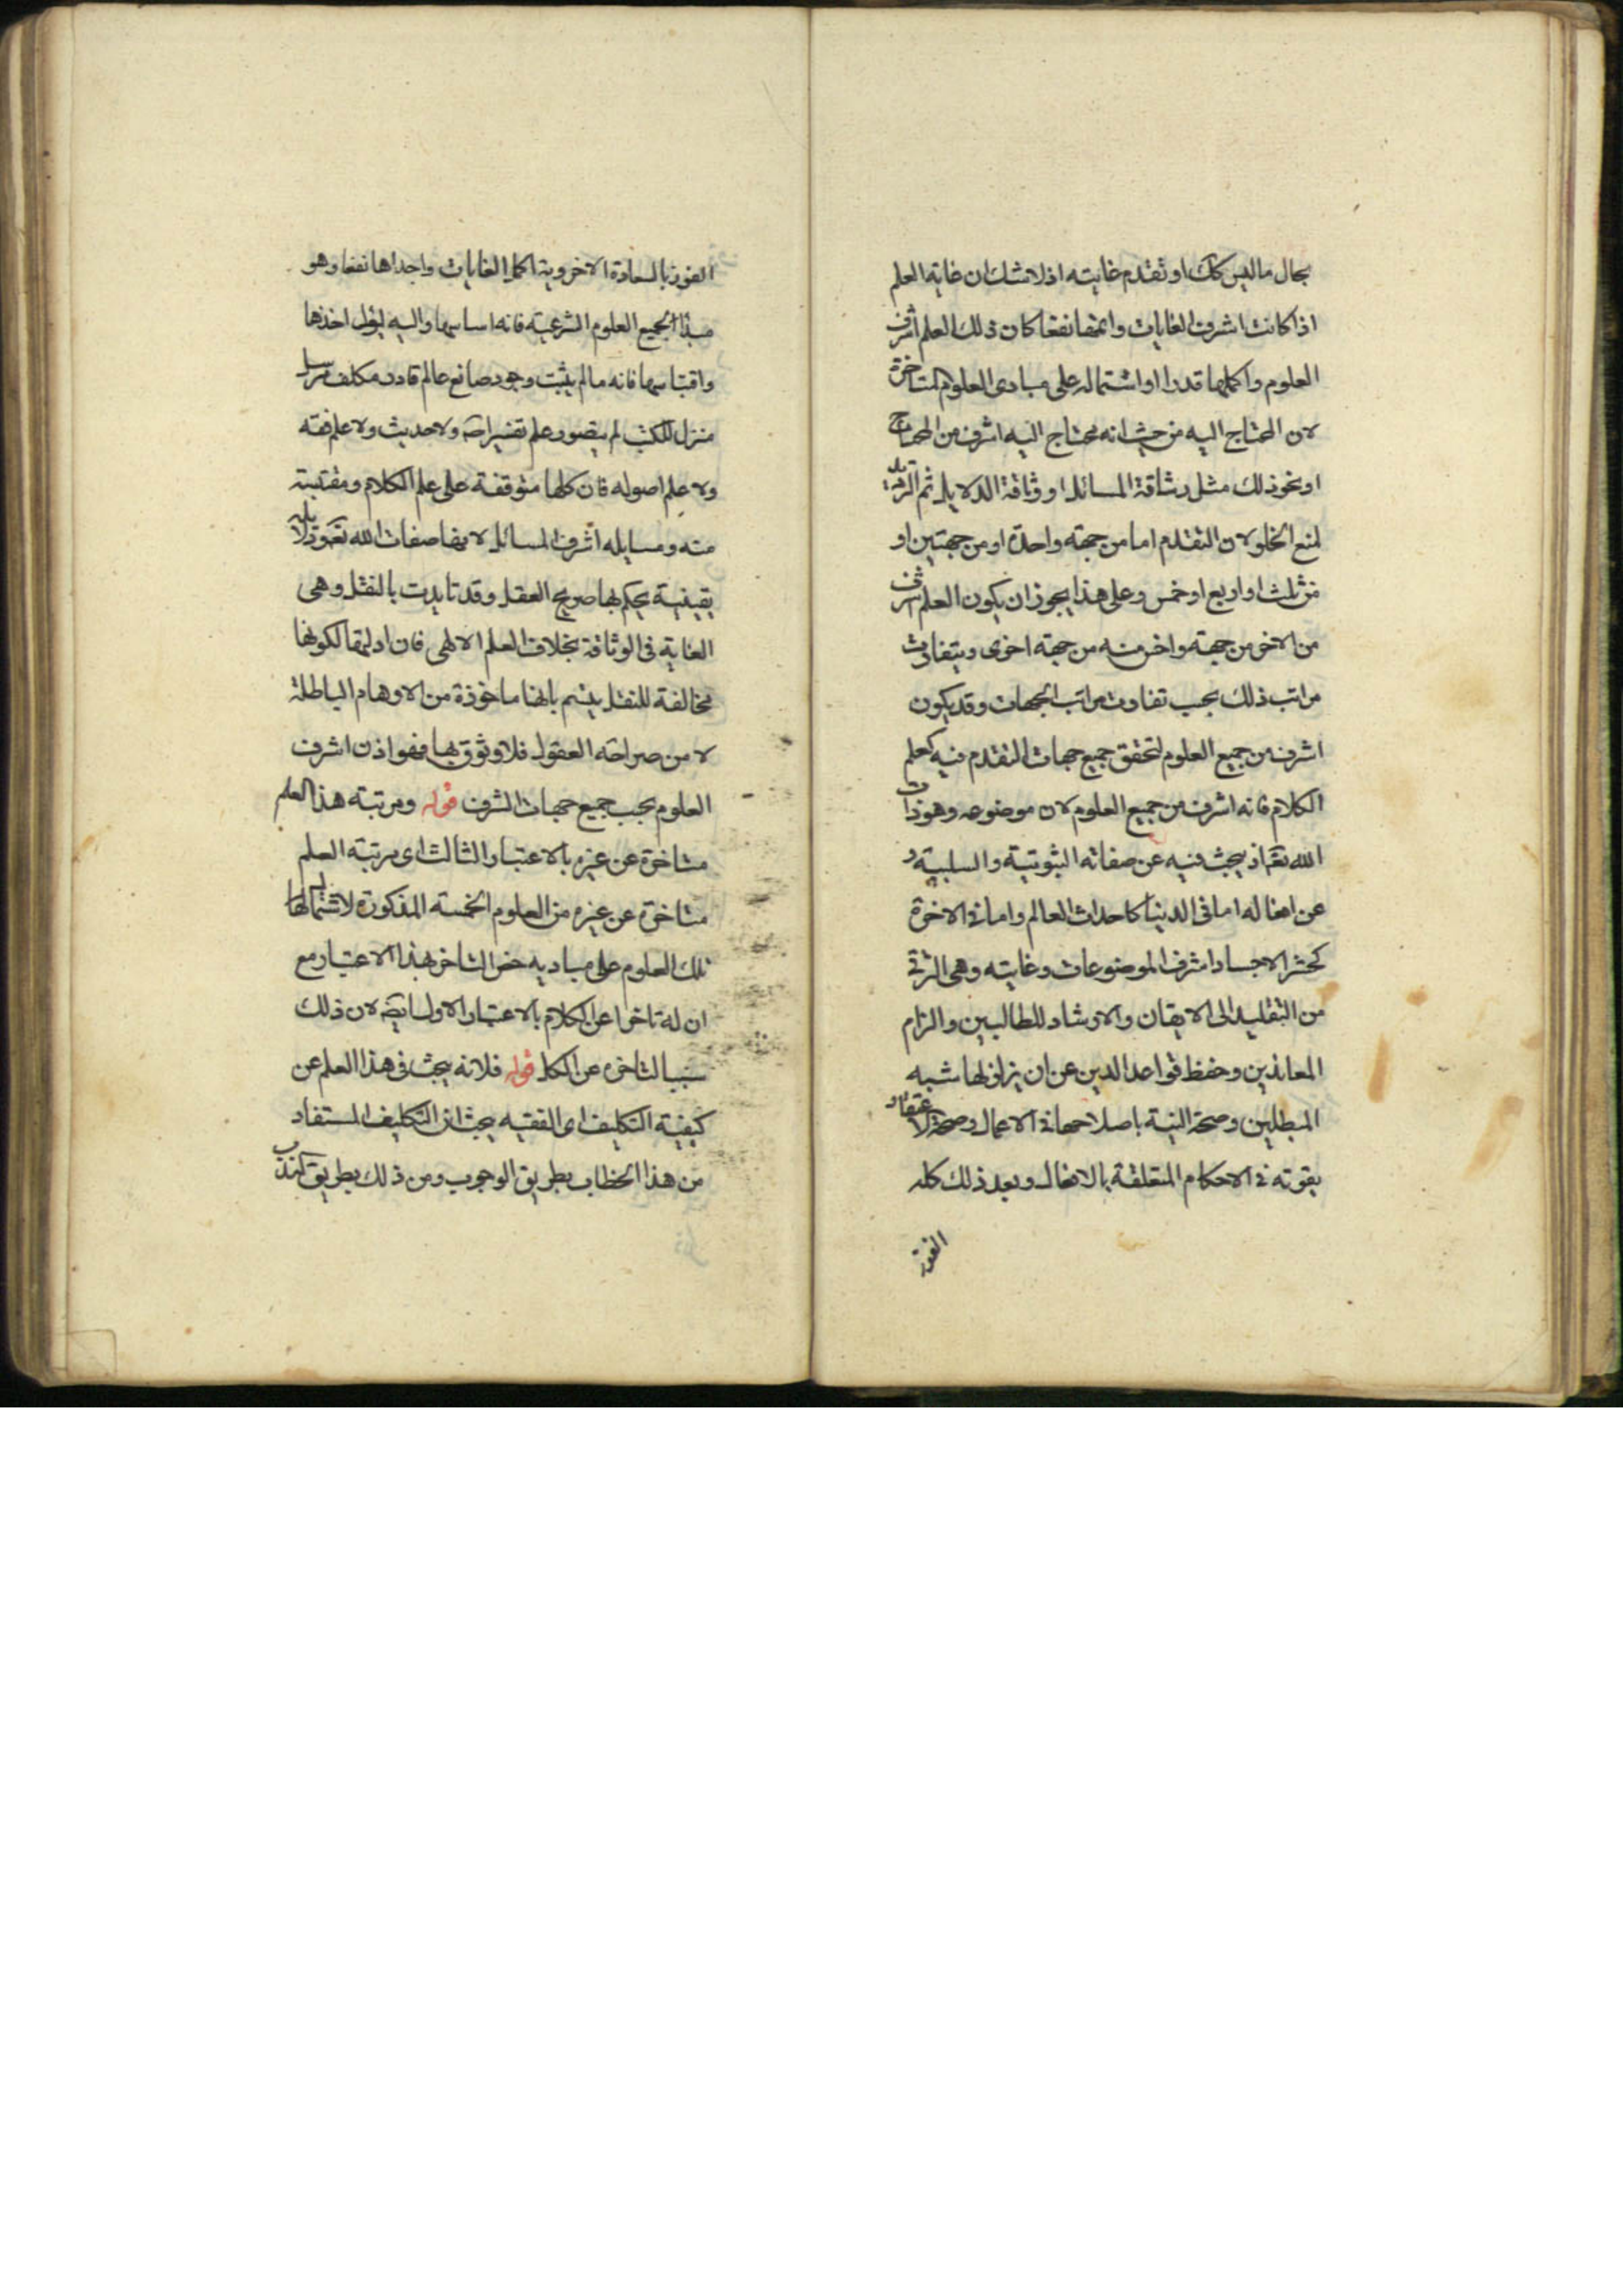 بحال ما ليس كك او تقدم غايته اذ لا شك ان غاية العلم
اذا كانت اشرف الغايات واتمها نفعا كان ذلك العلم اشرف
العلوم واكملها قدرا او اشتماله على مبادى العلوم المتاخرة
لان المحتاج اليه من حيث انه محتاج اليه اشرف من المحتاج
او نحو ذلك مثل رشاقة المسائل او وثاقة الدلايل ثم الترديد
لمنع الخلو لان التقدم اما من جهته واحدة او من جهتين او
من ثلث او اربع او خمس وعلى هذا يجوز ان يكون العلم اشرف
من الاخر من جهة واخس منه من جهة اخرى ويتفاوت
مراتب ذلك بحسب تفاوت مراتب الجهات وقد يكون
اشرف من جميع العلوم لتحقق جميع جهات التقدم فيه كعلم
الكلام فانه اشرف من جميع العلوم لان موضوعه وهو ذات
الله تعم اذ يبحث فيه عن صفاته الثبوتية والسلبية و
عن افعاله اما فى الدنيا كاحداث العالم واما فى الاخرة
كحشر الاجساد اشرف الموضوعات وغايته وهى الترقى
من التقليد الى الايقان والارشاد للطالبين والزام
المعاندين وحفظ قواعد الدين عن ان يزلزلها شبه
المبطلين وصحة النية باصلاحها فى الاعمال وصحة الاعتقاد
بقوته فى الاحكام المتعلقة بالافعال وبعد ذلك كله
الفوز
الفوز بالسعادة الاخروية اكمل الغايات واجداها نفعا وهو
مبدأ لجميع العلوم الشرعية فانه اساسها واليه يؤل اخذها
واقتباسها فانه ما لم يثبت وجود صانع عالم قادر مكلف مرسل
منزل للكتب لم يتصور علم تفسير اصه ولا حديث ولا علم فقه
ولا علم اصوله فان كلها متوقفة على علم الكلام ومقتبسة
منه ومسايله اشرف المسائل لانها صفات الله تعم ودلايله
يقينية يحكم بها صريح العقل وقد تايدت بالنقل وهى
الغاية فى الوثاقة بخلاف العلم الالهى فان ادلتها لكونها
مخالفة للنقل يتهم بانها ماخوذة من الاوهام الباطلة
لا من صراحه العقول فلا وثوق بها فهو اذن اشرف
العلوم بحسب جميع جهات الشرف قوله ومرتبة هذا العلم
متاخرة عن غيره بالاعتبار الثالث اى مرتبة العلم
متاخرة عن غيره من العلوم الخمسة المذكورة لاشتمالها
تلك العلوم على مباديه خص التاخر بهذا الاعتبار مع
ان له تاخرا عن الكلام بالاعتبار الاول ايضه لان ذلك
سبب التاخره عن الكل قوله فلانه يبحث فى هذا العلم عن
كيفية التكليف اى الفقيه يبحث ان التكليف المستفاد
من هذا الخطاب بطريق الوجوب ومن ذلك بطريق الندب